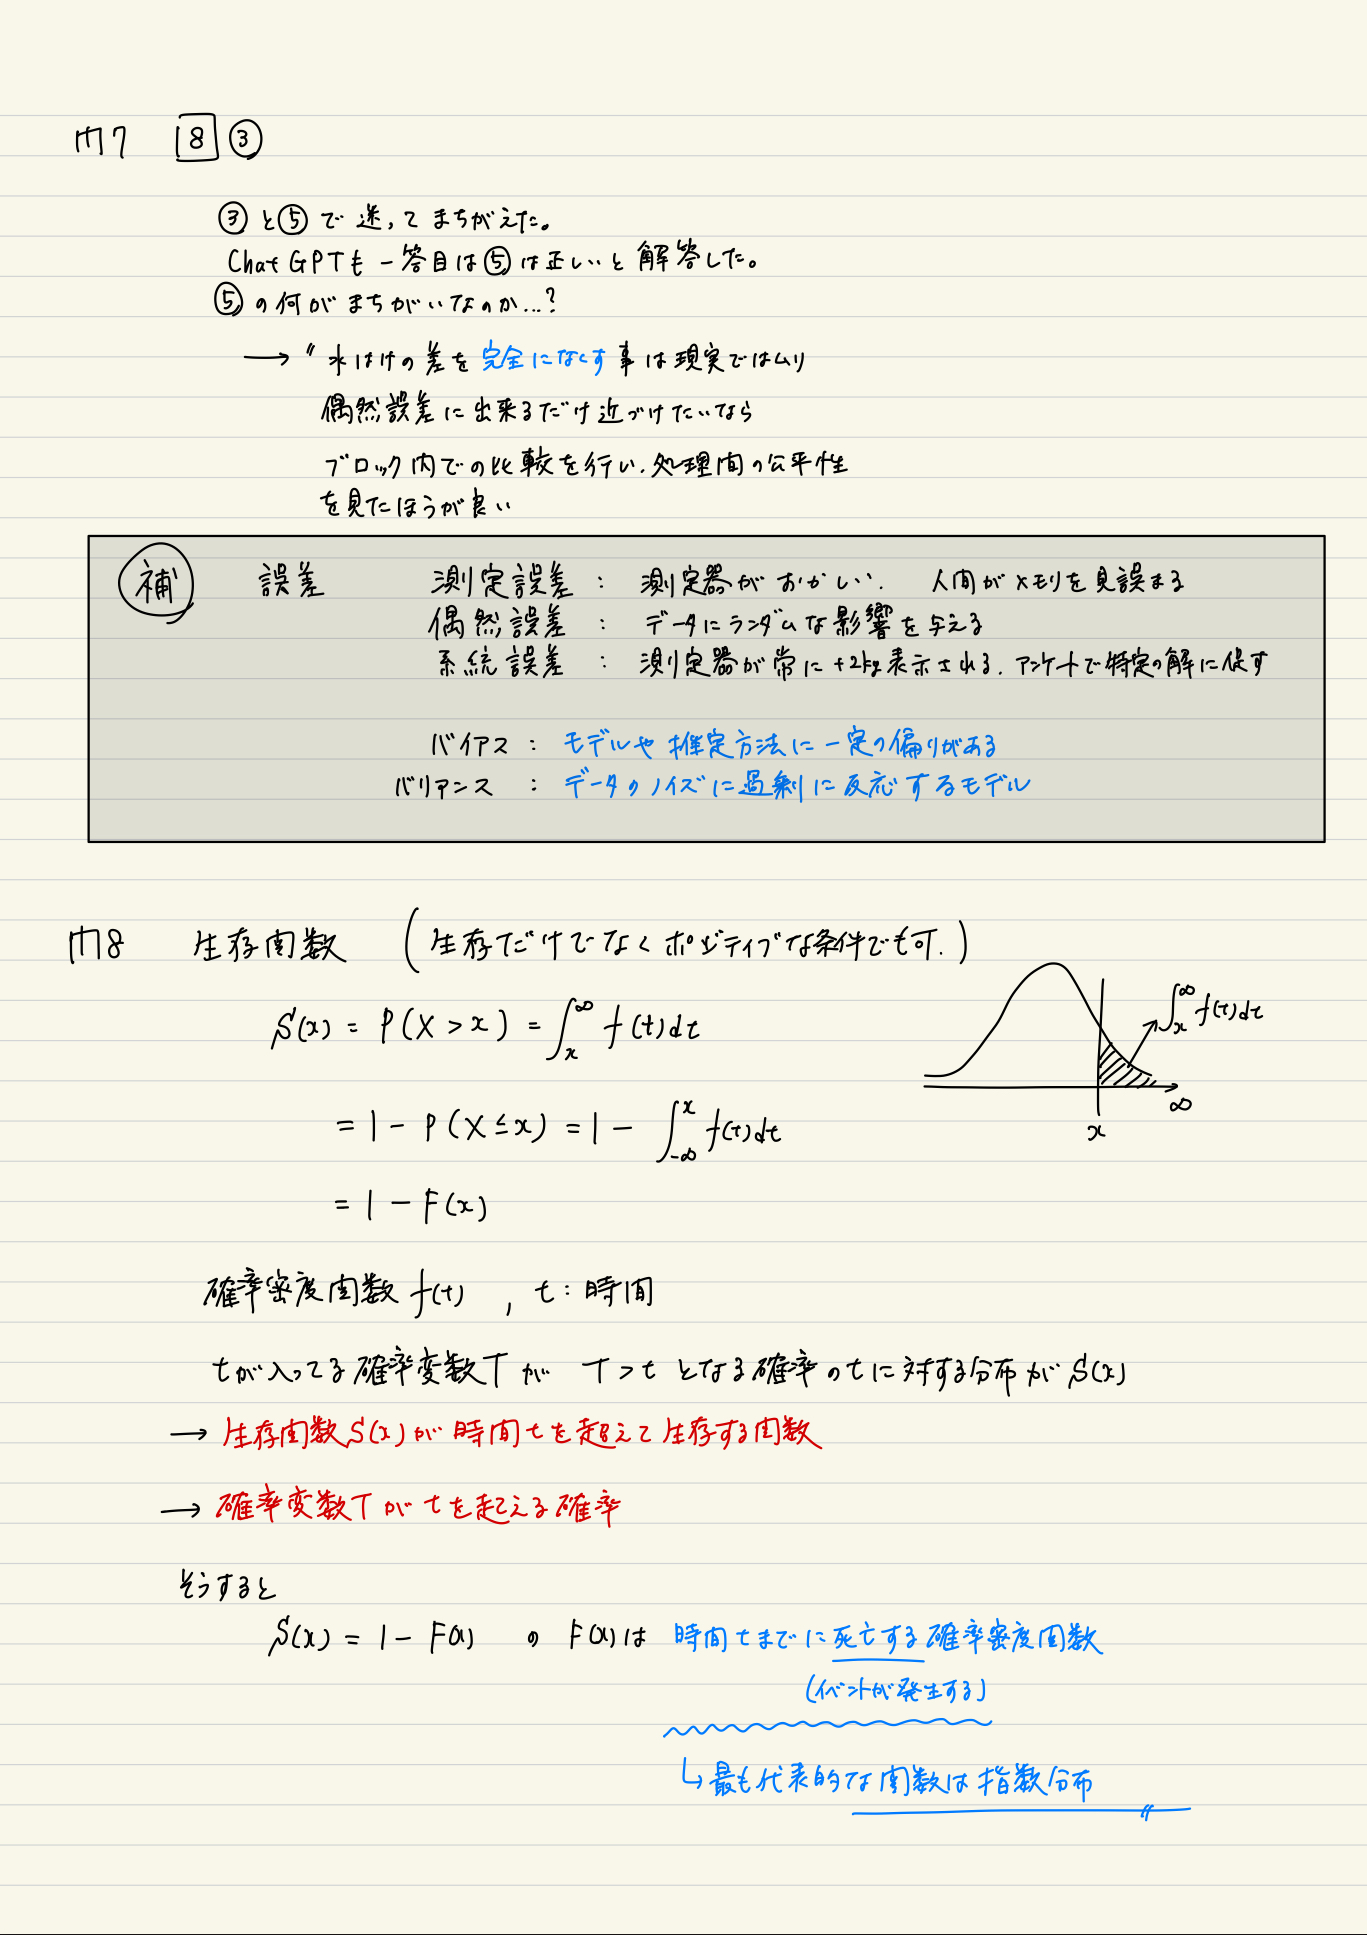 問7 8 ③
③と⑤で迷ってまちがえた。
Chat GPTも一答目は⑤は正しいと解答した。
⑤の何がまちがいなのか...?
→ 〃水はけの差を完全になくす事は現実ではムリ
偶然誤差に出来るだけ近づけたいなら
ブロック内での比較を行い、処理間の公平性
を見たほうが良い
補 誤差 測定誤差 : 測定器がおかしい. 人間がメモリを見誤まる
偶然誤差 : データにランダムな影響を与える
系統誤差 : 測定器が常に+2kg表示される. アンケートで特定の解に促す
バイアス : モデルや推定方法に一定の偏りがある
バリアンス : データのノイズに過剰に反応するモデル
問8 生存関数 (生存だけでなくポジティブな条件でも可.)
S(x) = P(X > x) = ∫_x^∞ f(t)dt
∫_x^∞ f(t)dt
∞
x
= 1 - P(X ≤ x) = 1 - ∫_{-∞}^x f(t)dt
= 1 - F(x)
確率密度関数 f(t) , t : 時間
tが入ってる確率変数Tが T>t となる確率のtに対する分布がS(x)
→ 生存関数S(x)が時間tを超えて生存する関数
→ 確率変数Tがtを超える確率
そうすると
S(x) = 1 - F(x) の F(x)は 時間tまでに死亡する確率密度関数
(イベントが発生する)
↳ 最も代表的な関数は指数分布〃